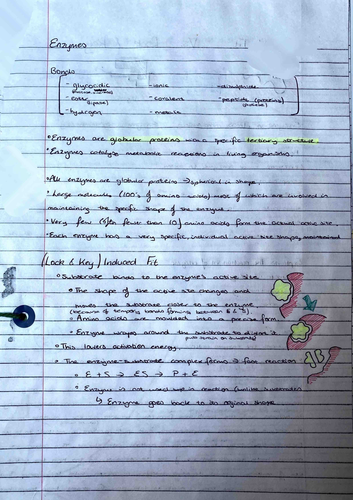 Enzymes
Bonds
- glycocidic - ionic - disulphide
- ester - covalent - peptide (proteins)
(lipase)
- hydrogen - metallic
• Enzymes are globular proteins with a specific tertiary structure
• Enzymes catalyse metabolic reactions in living organisms
• All enzymes are globular proteins → spherical in shape
• Large molecules (100's of amino acids) most of which are involved in
maintaining the specific shape of the enzyme
• Very few (often fewer than 10) amino acids form the actual active site
• Each enzyme has a very specific individual active site shape, maintained
(Lock & Key) Induced Fit
• Substrate binds to the enzyme's active site
• The shape of the active site changes and
moves the substrate closer to the enzyme
(because of temporary bonds forming between E & S)
• Amino acids are moulded into a precise form
• Enzyme wraps around the substrate to distort it
• This lowers activation energy
• The enzyme-substrate complex forms → fast reaction
• E + S → ES → P + E
• Enzyme is not used up in reaction (unlike substrates)
↳ Enzyme goes back to its original shape